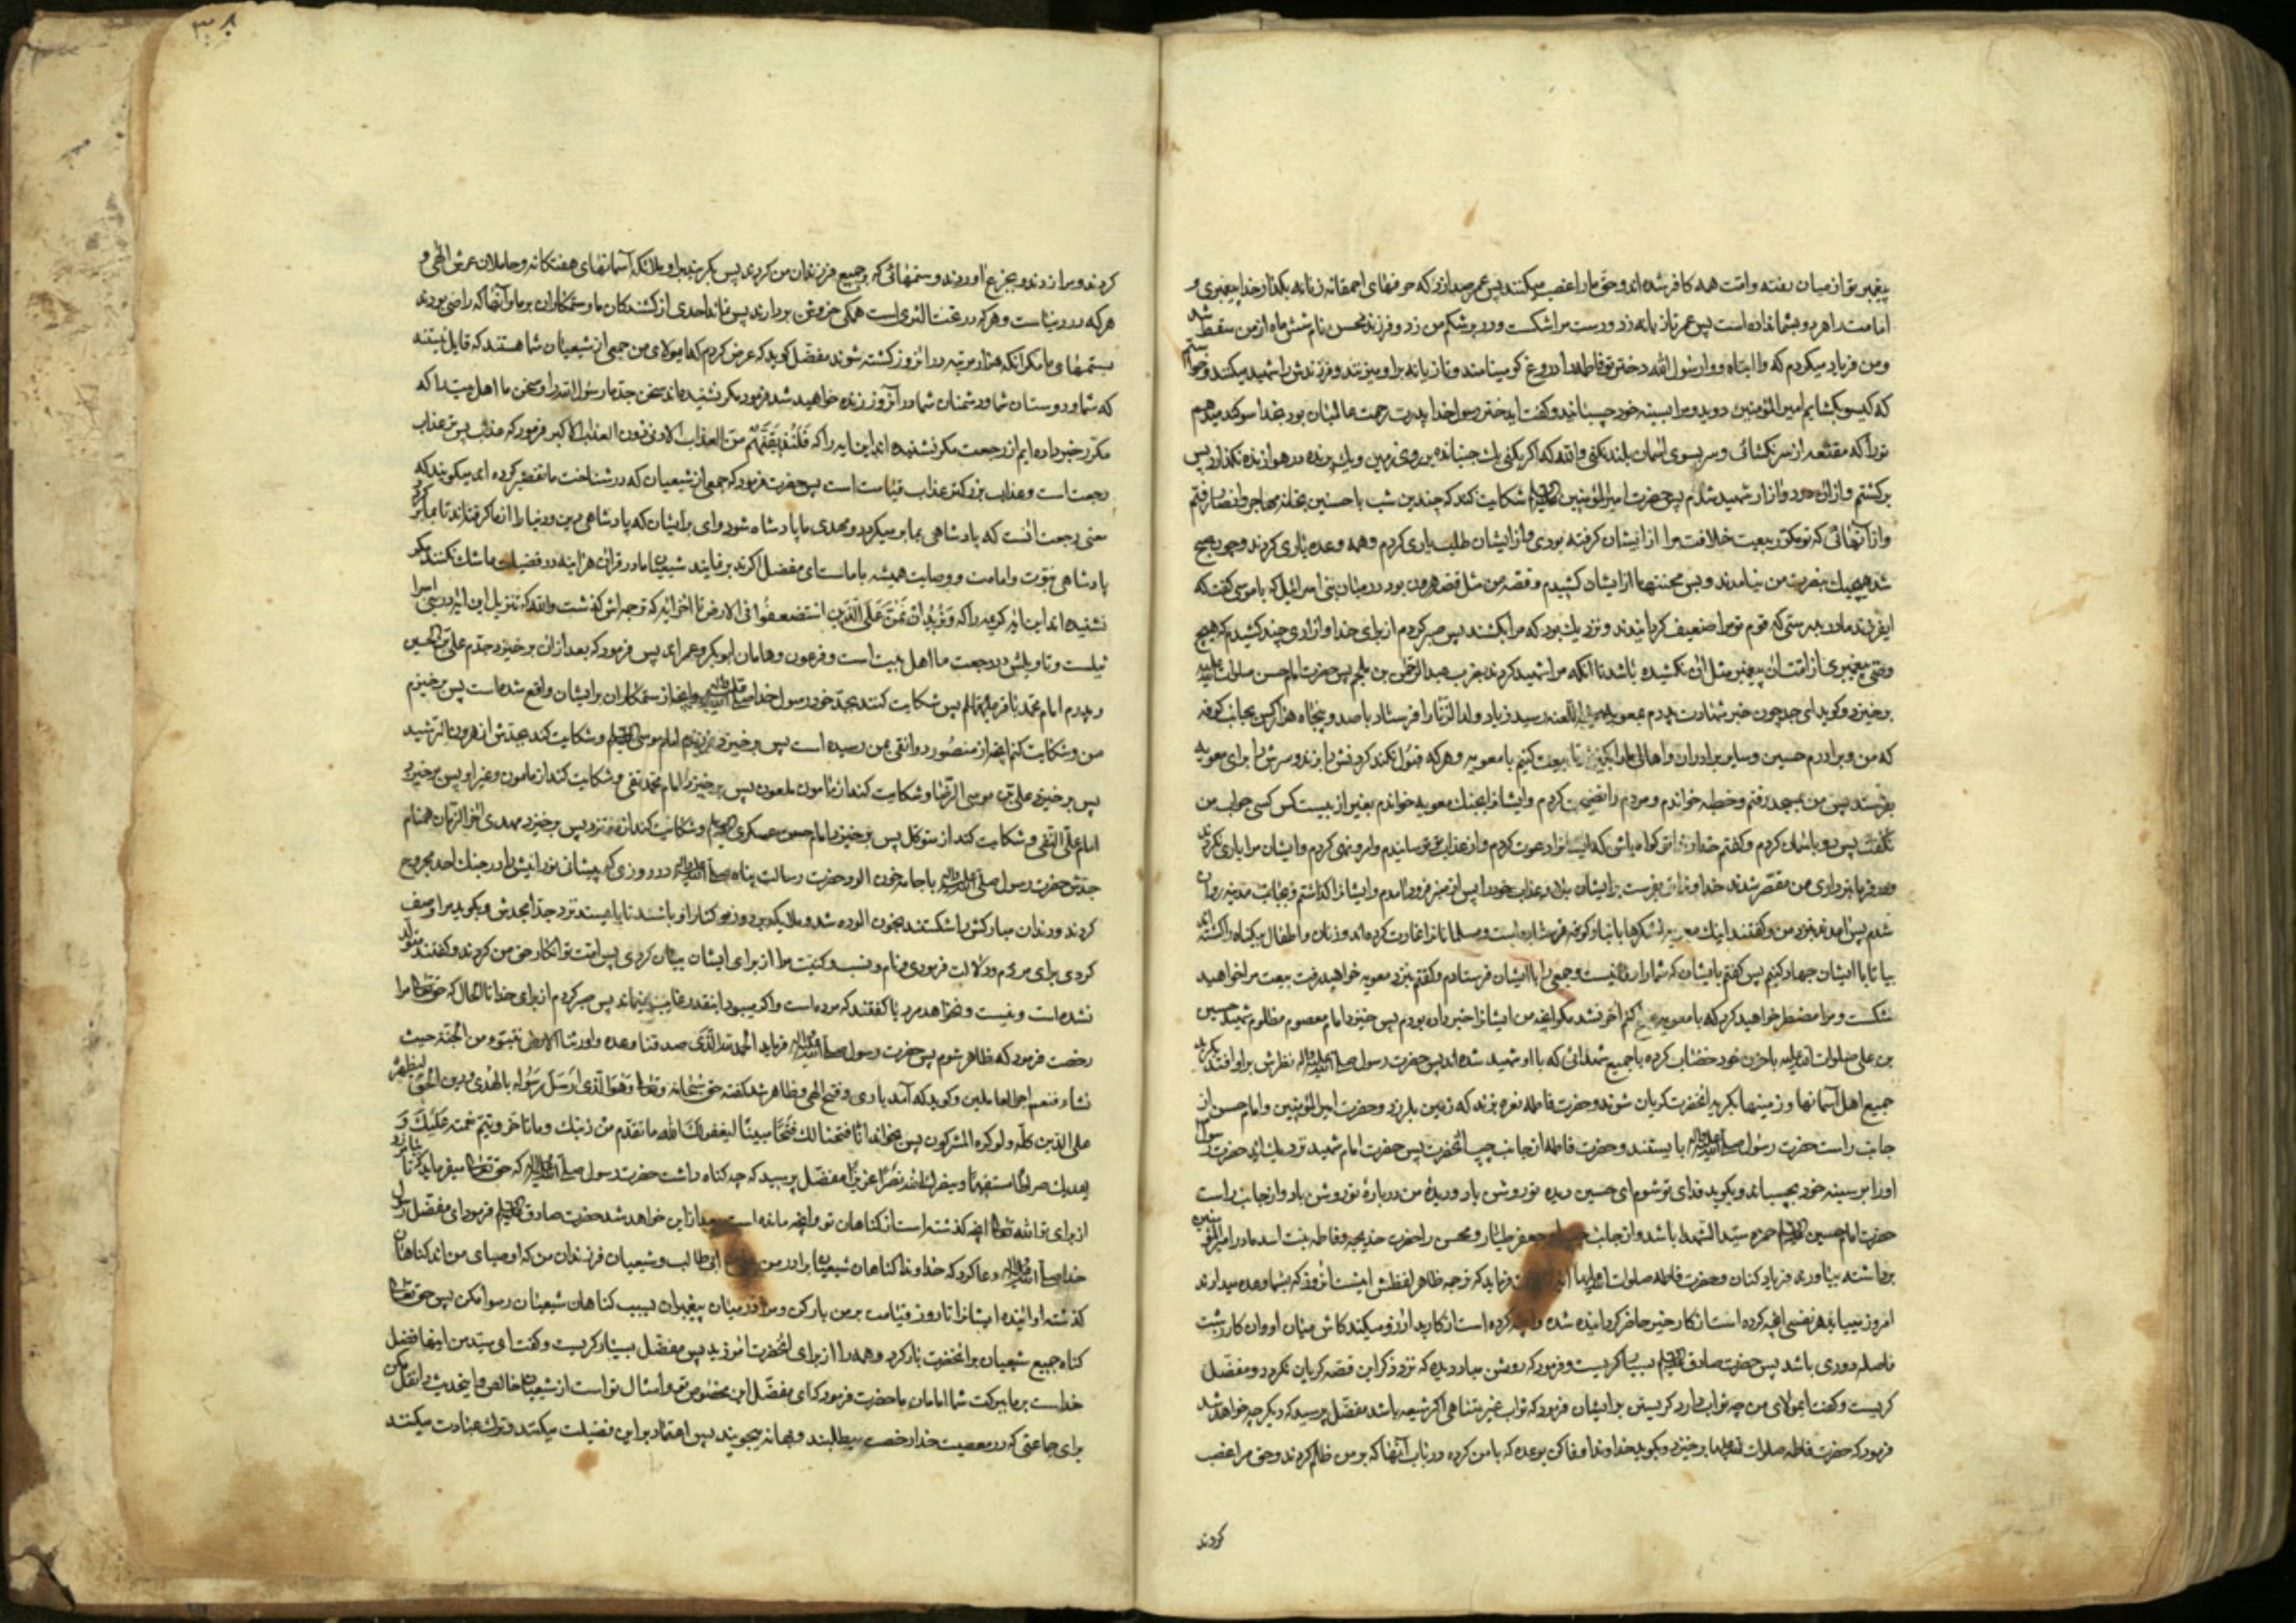 پیغمبر تو از میان رفته و امت همه کافر شده اند و حق ما را غصب میکنند پس عمر صدا زد که حرفهای احمقانه زنانه بگذار خدا پیغمبری و
امامت را هر دو بشما نداده است پس عمر تازیانه زد و دست مرا شکست و در بر شکم من زد و فرزند محسن نام شش ماه از من سقط شد
و من فریاد میکردم که وا ابتاه و وا رسول الله دختر تو فاطمه را دروغ گو مینامند و تازیانه بر او میزنند و فرزندش را شهید میکنند و خواستم
که گیسو بگشایم امیر المؤمنین دوید و مرا بسینه خود چسبانید و گفت ای دختر رسول خدا پدرت رحمت عالمیان بود بخدا سوگند میدهم
تو را که مقنعه از سر نگشائی و سر بسوی آسمان بلند نکنی والله که اگر بکنی یک جنبنده بر روی زمین و یک پرنده در هوا زنده نگذارد پس
برگشتم و از آن درد و آزار شهید شدم پس حضرت امیر المؤمنین شکایت کند که چندین شب با حسنین بخانه مهاجر و انصار رفتم
و از آنهائی که تو مکرر بیعت خلافت مرا از ایشان گرفته بودی و از ایشان طلب یاری کردم و همه وعده یاری کردند و چون صبح
شد هیچیک بنصرت من نیامدند و بس محنتها از ایشان کشیدم و قصه من مثل قصه هرون بود در میان بنی اسرائیل که با موسی گفت که
ای فرزند مادر بدرستی که قوم تو مرا ضعیف گردانیدند و نزدیک بود که مرا بکشند پس صبر کردم از برای خدا و آزاری چند کشیدم که هیچ
وصی پیغمبری از امت آن پیغمبر مثل آن نکشیده باشد تا آنکه مرا شهید کردند بضرب عبد الرحمن بن ملجم پس حضرت امام حسن صلوات الله علیه
برخیزد و گوید ای جد چون خبر شهادت پدرم بمعویه رسید زیاد ولد الزنا را فرستاد با صد و پنجاه هزار کس بجانب کوفه
که من و برادرم حسین و سایر برادران و اهالی ما را بگیرند تا بیعت کنیم با معویه و هر که قبول نکند گردنش را بزند و سرش را برای معویه
بفرستد پس من بمسجد رفتم و خطبه خواندم و مردم را نصیحت کردم و ایشانرا بجنک معویه خواندم بغیر از بیست کس کسی جواب من
نگفت پس رو باسمان کردم و گفتم خداوندا تو گواه باش که ایشانرا دعوت کردم و از عذاب تو ترسانیدم و امر و نهی کردم و ایشان مرا یاری نکردند
و در فرمانبرداری من مقصر شدند خداوندا تو بفرست بر ایشان بلا و عذاب خود را پس از منبر فرود آمدم و ایشانرا گذاشتم و بجانب مدینه روان
شدم پس آمدند بنزد من و گفتند اینک معویه لشکرها بانبار و کوفه فرستاده است و مسلمانانرا غارت کرده اند و زنان و اطفال بیگناه را کشته اند
بیا تا با ایشان جهاد کنیم پس گفتم بایشان که شما را وفا نیست و جمعی را با ایشان فرستادم و گفتم بنزد معویه خواهید رفت بیعت مرا خواهید
شکست و مرا مضطر خواهید کرد که با معویه صلح کنم آخر نشد مگر آنچه من ایشانرا خبر داده بودم پس خیزد امام معصوم مظلوم شهید حسین
بن علی صلوات الله علیه با خون خود خضاب کرده با جمیع شهدائی که با او شهید شده اند پس حضرت رسول صلی الله علیه و آله نظرش بر او افتد بگرید
جمیع اهل آسمانها و زمینها بگریه آنحضرت گریان شوند و حضرت فاطمه نعره بزند که زمین بلرزد و حضرت امیر المؤمنین و امام حسن از
جانب راست حضرت رسول صلی الله علیه و آله بایستند و حضرت فاطمه از جانب چپ آنحضرت پس حضرت امام شهید نزدیک آید حضرت رسول
او را بر سینه خود بچسباند و بگوید فدای تو شوم ای حسین دیده تو روشن باد و دیدهٔ من دربارهٔ تو روشن باد و از جانب راست
حضرت امام حسین حمزه سید الشهدا باشد و از جانب چپ او جعفر طیار و محسن را حضرت خدیجه و فاطمه بنت اسد مادر امیر المؤمنین
برداشته بیاورند فریاد کنان و حضرت فاطمه صلوات الله علیها آیه فرماید که ترجمه ظاهر لفظش اینست آنروز که بشما وعده میدادند
امروز مییابد هر نفسی آنچه کرده است از کار خیر حاضر گردانیده شده و آنچه کرده است از کار بد آرزو میکند کاش میان او و آن کار زشت
فاصله دوری باشد پس حضرت صادق بسیار گریست و فرمود که روشن مباد دیده که نزد ذکر این قصه گریان نگردد و مفضل
گریست و گفت ای مولای من چه ثواب دارد گریستن بر ایشان فرمود که ثواب غیر متناهی اگر شیعه باشد مفضل پرسید که دیگر چه خواهد شد
فرمود که حضرت فاطمه صلوات الله علیها برخیزد و بگوید خداوندا وفا کن بوعده که با من کرده در باب آنها که بر من ظلم کردند و حق مرا غصب
کردند
۳۰۸
کردند و مرا زدند و بجزع آوردند و ستمهائی که بر جمیع فرزندان من کردند پس بگریند بر او ملائکه آسمانهای هفتگانه و حاملان عرش الهی و
هر که در دنیاست و هر که در تحت الثری است همگی خروش بردارند پس نماند احدی از کشندگان ما و ستمکاران بر ما و آنها که راضی بودند
بستمهای ما مگر آنکه هزار مرتبه در آنروز کشته شوند مفضل گوید که عرض کردم که ای مولای من جمعی از شیعیان شما هستند که قایل نیستند
که شما و دوستان شما و دشمنان شما در آنروز زنده خواهید شد فرمود مگر نشنیده اند سخن جد ما رسول الله را و سخن ما اهل بیت را که
مکرر خبر داده ایم از رجعت مگر نشنیده اند این آیه را که وَلَنُذِیقَنَّهُمْ مِنَ العذاب الادنی دون العذاب الاکبر فرمود که عذاب پست عذاب
رجعت است و عذاب بزرکتر عذاب قیامت است پس حضرت فرمود که جمعی از شیعیان که در شناخت ما تقصیر کرده اند میگویند که
معنی رجعت آنست که پادشاهی بما بر میگردد و مهدی ما پادشاه شود وای بر ایشان که پادشاهی دین و دنیا را از ما گرفته اند تا بما بر گردد
پادشاهی نبوت و امامت و وصایت همیشه با ماست ای مفضل اگر تدبر نمایند شیعیان ما در قرآن هر آینه در فضیلت ما شک نکنند مگر
نشنیده اند این آیه کریمه را که وَنُرِیدُ اَنْ نَمُنَّ عَلَی الَّذینَ استُضعفوا فی الارض تا آخر آیه که ترجمه اش گذشت والله که تنزیل این آیه در بنی اسرا
ئیلست و تاویلش در رجعت ما اهل بیت است و فرعون و هامان ابوبکر و عمر اند پس فرمود که بعد از آن برخیزد جدم علی بن الحسین
و پدرم امام محمد باقر پس شکایت کنند بجد خود رسول خدا صلی الله علیه و آله آنچه از ستمکاران بر ایشان واقع شده است پس برخیزم
من و شکایت کنم آنچه از منصور دوانقی بمن رسیده است پس برخیزد فرزندم امام موسی و شکایت کند بجدش از هرون الرشید
پس برخیزد علی بن موسی الرضا و شکایت کند از مامون ملعون پس برخیزد امام محمد تقی و شکایت کند از مامون و غیر او پس برخیزد
امام علی النقی و شکایت کند از متوکل پس برخیزد امام حسن عسکری و شکایت کند از معتز پس برخیزد مهدی آخر الزمان همنام
جدش حضرت رسول صلی الله علیه و آله با جامه خون آلود حضرت رسالت پناه صلی الله علیه و آله در روزی که پیشانی نورانیش را در جنک احد مجروح
کردند و دندان مبارکش را شکستند بخون آلوده شد و ملائکه بر دور و کنار او باشند تا بایستد نزد جد امجدش و بگوید مرا وصف
کردی برای مردم و دلالت فرمودی و نام و نسب و کنیت مرا از برای ایشان بیان کردی پس امت تو انکار حق من کردند و گفتند متولد
نشده است و نیست و نخواهد بود یا گفتند که مرده است و اگر میبود اینقدر غایب نمیماند پس صبر کردم از برای خدا تا الحال که حق تعالی مرا
رخصت فرمود که ظاهر شوم پس حضرت رسول صلی الله علیه و آله فرماید الحمد لله الذی صدقنا وعده و اورثنا الارض نتبوء من الجنة حیث
نشاء فنعم اجر العاملین و گوید که آمد یاری و فتح الهی و ظاهر شد گفته حق سبحانه و تعالی وَهُوَ الَّذی اَرسَلَ رَسُولَه بالهُدی و دین الحق لیظهره
علی الدین کله و لو کره المشرکون پس بخواند انا فتحنا لک فَتحًا مبینًا لیغفر لکَ الله ما تقدم من ذنبک و ما تاخر و یتم نعمته عَلَیکَ وَ
یهدیک صراطًا مستقیمًا و ینصرک الله نصرًا عزیزًا مفضل پرسید که چه گناه داشت حضرت رسول صلی الله علیه و آله که حق تعالی میفرماید تا بیامرزد
از برای تو الله تعالی آنچه گذشته است از گناهان تو و آنچه مانده است بعد از این خواهد شد حضرت صادق فرمود ای مفضل رسول
خدا صلی الله علیه و آله دعا کرد که خداوندا گناهان شیعیان برادر من ابی طالب و شیعیان فرزندان من که اوصیای من اند گناهان
گذشته و آینده ایشانرا تا روز قیامت بر من بار کن و مرا در میان پیغمبران بسبب گناهان شیعیان رسوا مکن پس حق تعالی
گناه جمیع شیعیان بر آنحضرت بار کرد و همه را از برای آنحضرت آمرزید پس مفضل بسیار گریست و گفت ای سید من اینها فضل
خداست بر ما ببرکت شما امامان ما حضرت فرمود که ای مفضل این مخصوص تو و امثال تو است از شیعیان خالص و این حدیث را نقل مکن
برای جماعتی که در معصیت خدا رخصت میطلبند و بهانه میجویند پس اعتماد بر این فضیلت میکنند و ترک عبادت میکنند